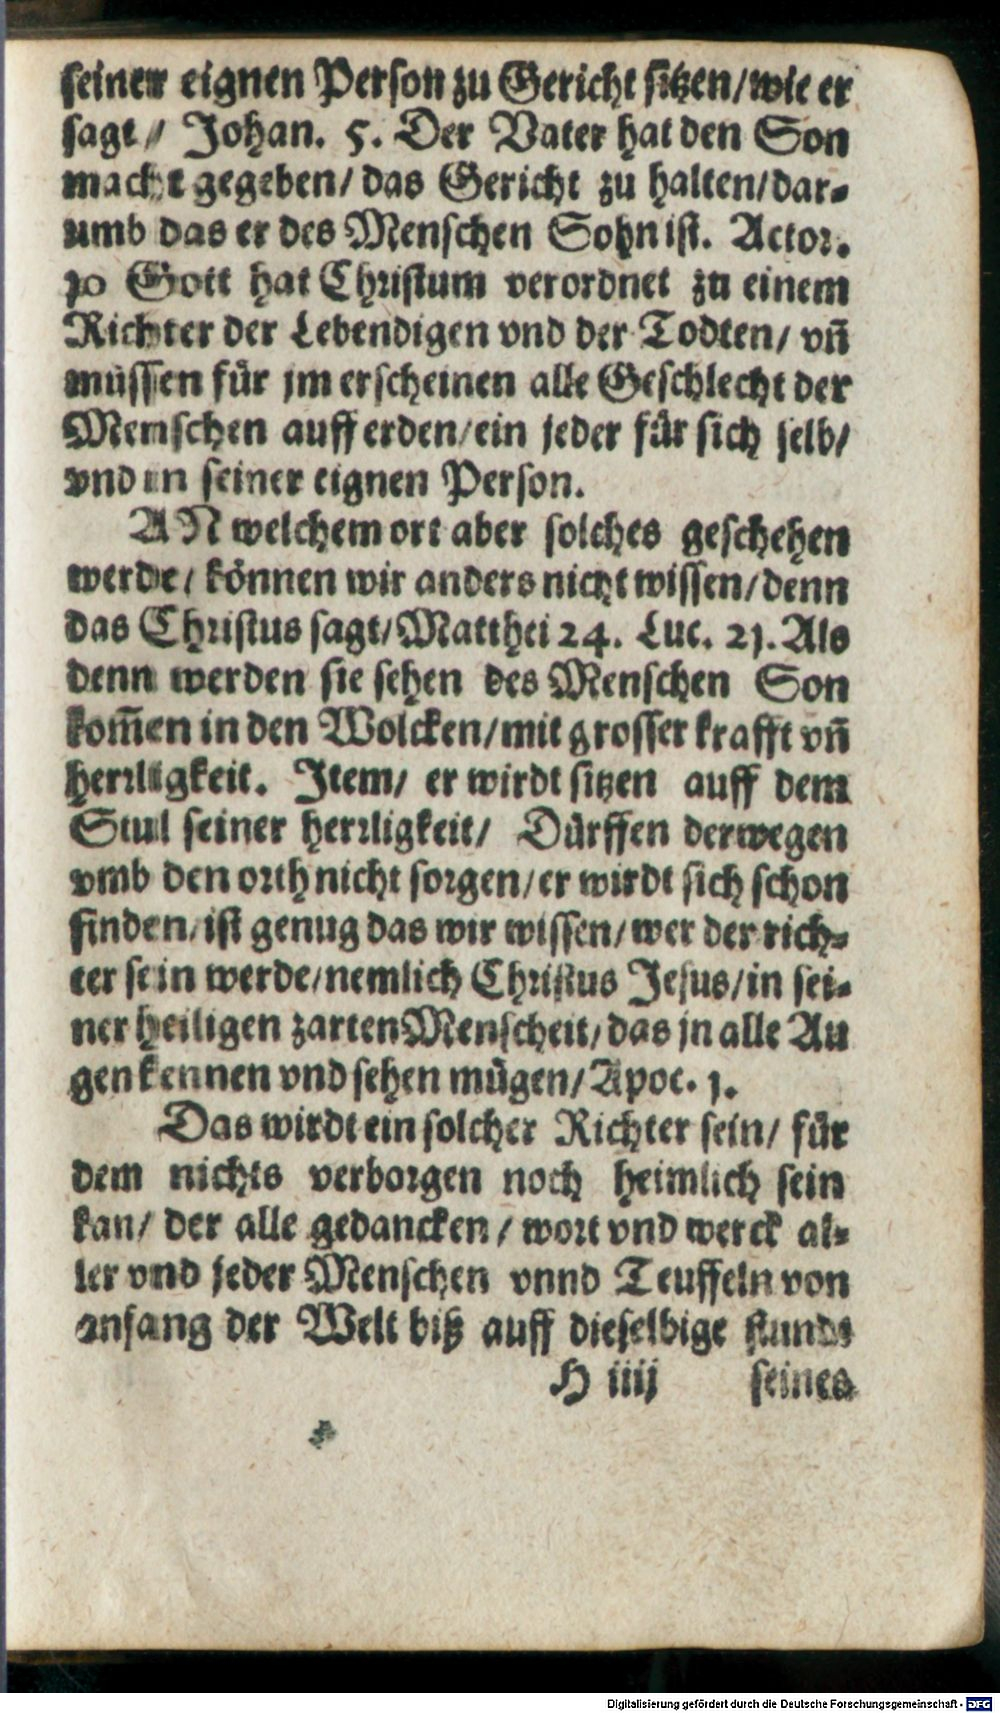 seiner eignen Person zu Gericht sitzen/wie er
sagt/ Johan. 5. Der Vater hat den Son
macht gegeben/ das Gericht zu halten/dar-
umb das er des Menschen Sohn ist. Actor.
10 Gott hat Christum verordnet zu einem
Richter der Lebendigen vnd der Todten/ vn̄
müssen für jm erscheinen alle Geschlecht der
Menschen auff erden/ein jeder für sich selb/
vnd in seiner eignen Person.
AN welchem ort aber solches geschehen
werde/ können wir anders nicht wissen/denn
das Christus sagt/Matthei 24. Luc. 21. Als
denn werden sie sehen des Menschen Son
kom̄en in den Wolcken/mit grosser krafft vn̄
herrligkeit. Item/ er wirdt sitzen auff dem
Stul seiner herrligkeit/ Dürffen derwegen
vmb den orth nicht sorgen/er wirdt sich schon
finden/ist genug das wir wissen/wer der rich-
ter sein werde/nemlich Christus Jesus/in sei-
ner heiligen zarten Menscheit/das jn alle Au
gen kennen vnd sehen mügen/Apoc. 1.
Das wirdt ein solcher Richter sein/ für
dem nichts verborgen noch heimlich sein
kan/ der alle gedancken/ wort vnd werck al-
ler vnd jeder Menschen vnnd Teuffeln von
anfang der Welt biß auff dieselbige stunde
H iiij seines
Digitalisierung gefördert durch die Deutsche Forschungsgemeinschaft - DFG